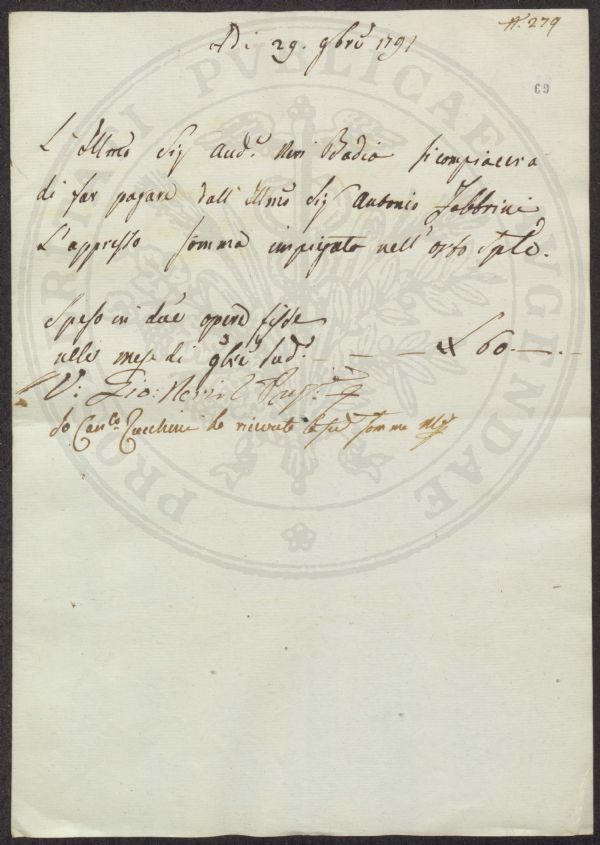 N.° 279
A Di 29. 9bre 1791
69
L'Illmo Sig Aud.re Neri Badia si compiacerà
di far pagare dall'Illmo Sig Antonio Fabbrini
L'appresso somma impiegata nell'orto Sple.
Speso in due opere fisse
nelle mese di 9bre sud.° — — — £ 60.—.—
V: Gio: Neri
Io Canc.° Zucchini ho ricevuto la sud.a somma
PROPRIAI PVBLICAE AVGENDAE